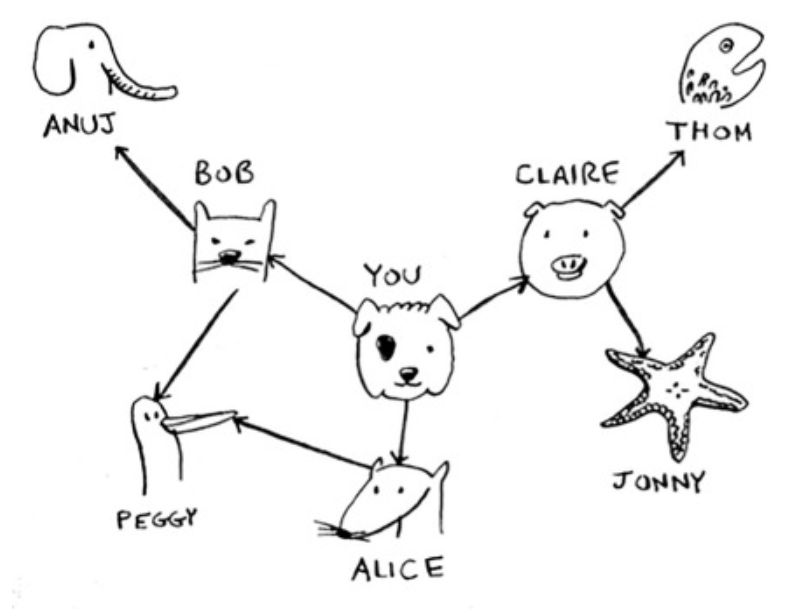 ANUJ
THOM
BOB
CLAIRE
YOU
PEGGY
JONNY
ALICE